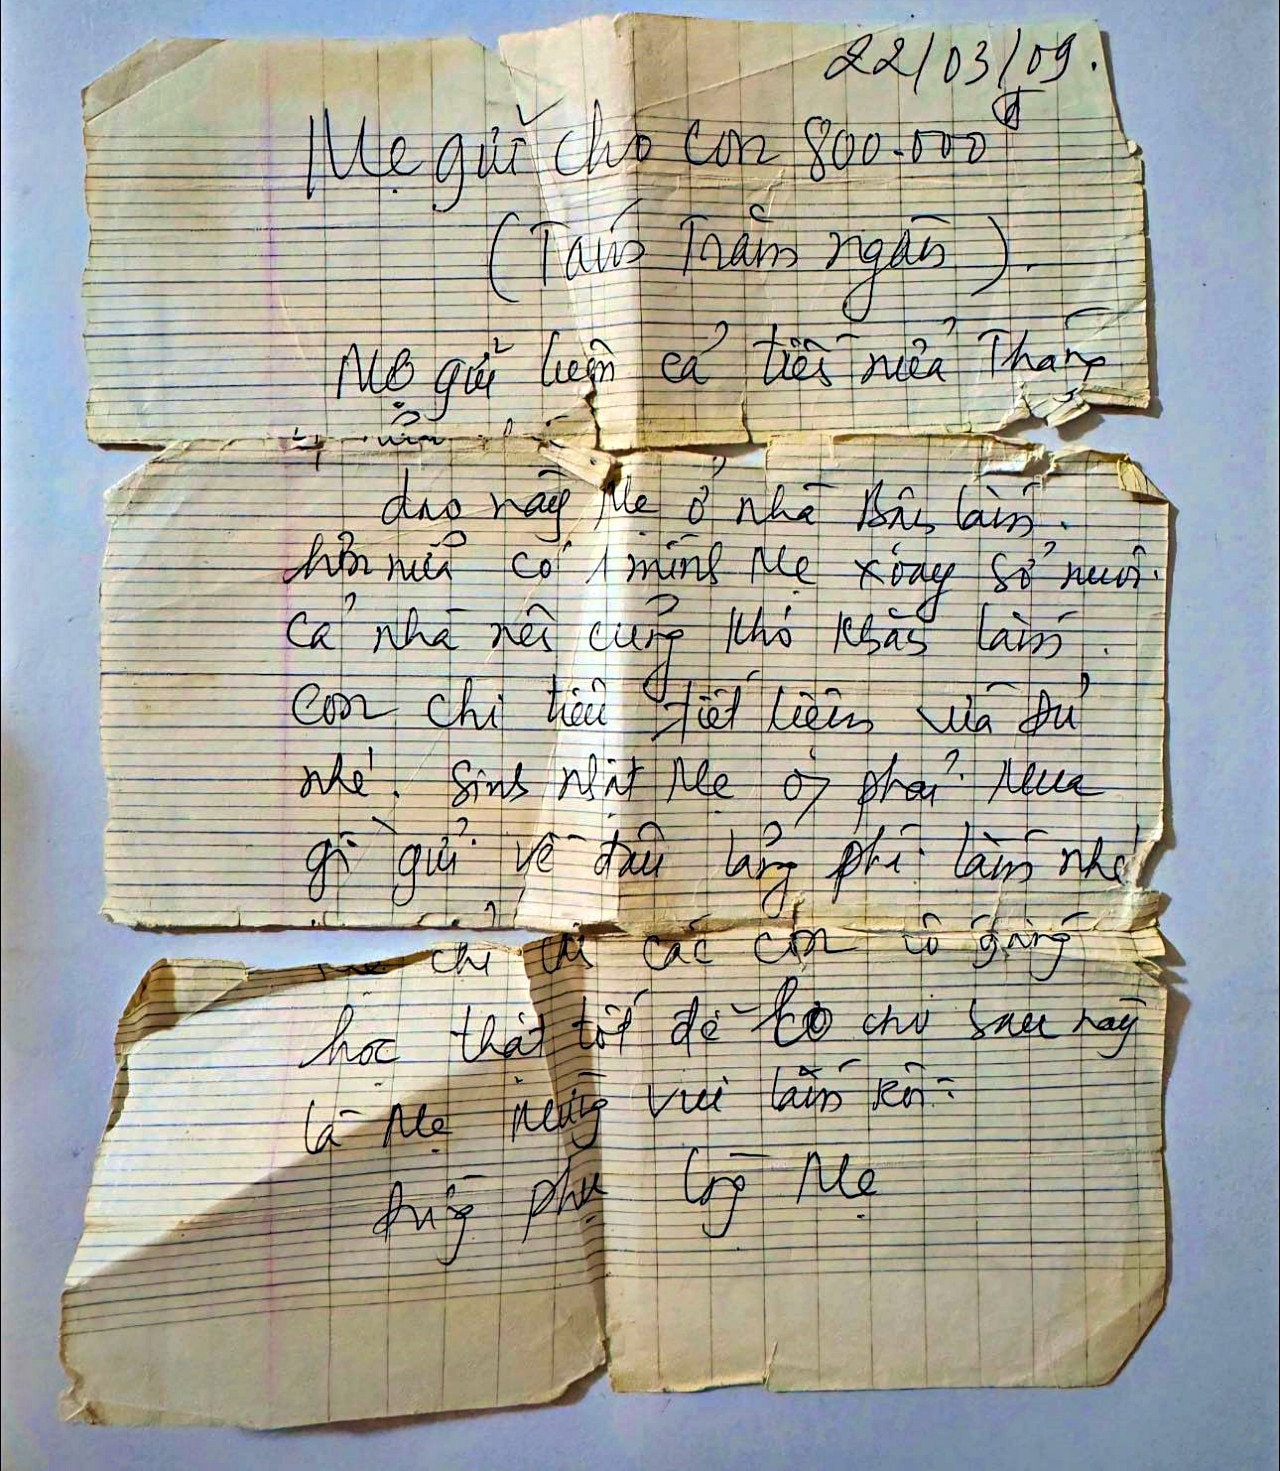 22/03/09.
Mẹ gửi cho con 800.000đ
(Tám Trăm ngàn).
Mẹ gửi luôn cả tiền nửa Tháng
dạo này Mẹ ở nhà Bận lắm.
hơn nữa có 1 mình Mẹ xoay sở nuôi
cả nhà nên cũng khó khăn lắm.
con chi tiêu tiết kiệm vừa đủ
nhé. Sinh nhật Mẹ ko phải Mua
gì gửi về đâu lãng phí lắm nhé
chỉ các con cố gắng
học thật tốt để lo cho sau này
là Mẹ Mừng vui lắm rồi.
đừng phụ lòng Mẹ